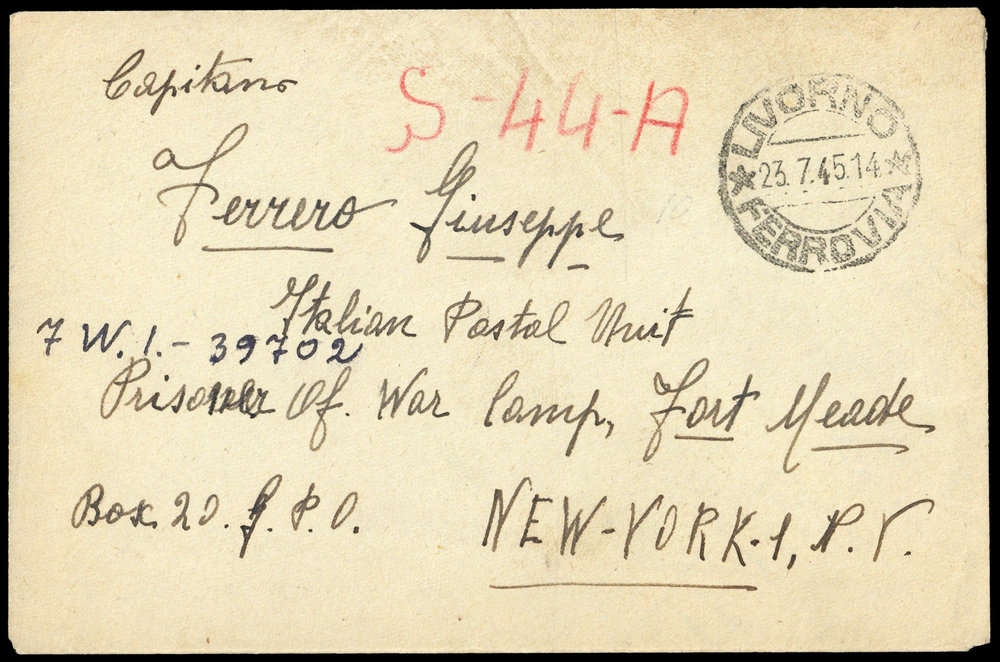 Capitano
S-44-A
LIVORNO
23.7.45.14
FERROVIA
Ferrero Giuseppe
Italian Postal Unit
7 W.I.- 39702
Prisoner Of. War Camp, Fort Meade
Box 20. G. P. O.
NEW-YORK-1, N.Y.